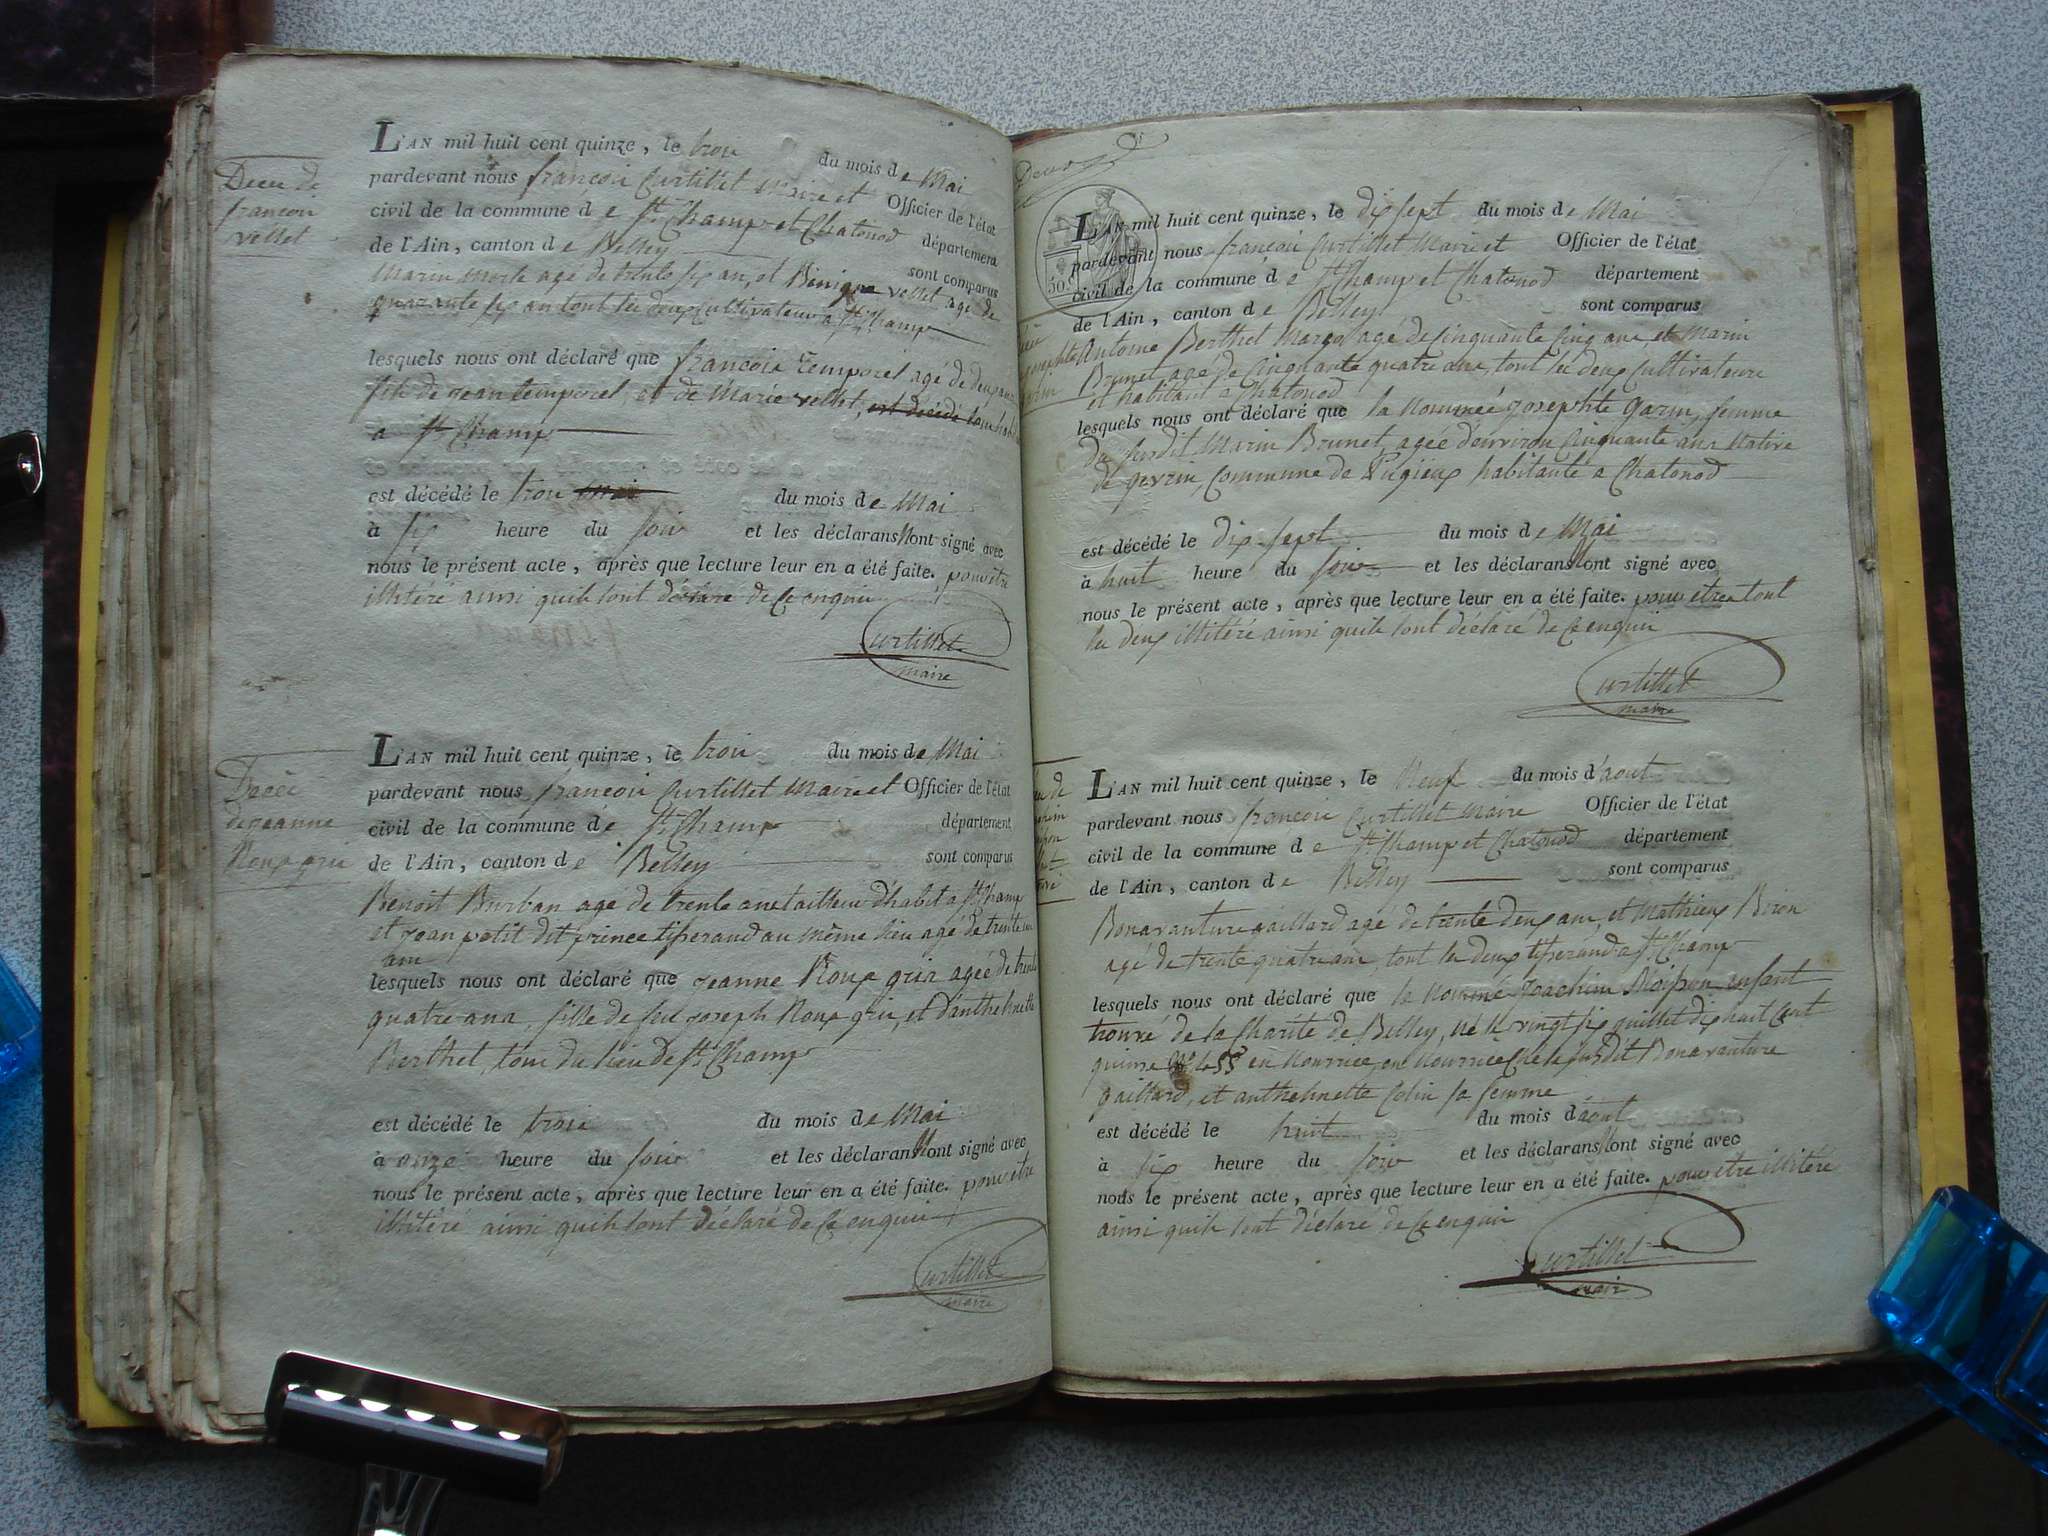 L'AN mil huit cent quinze, le troi du mois de Mai
pardevant nous françoi Curtillet Maire et Officier de l'état
civil de la commune de St Champ et Chatonod département
de l'Ain, canton de Belley sont comparus
Marin morte agé de trente six an, et Benigne vellet agé de
quarante six an tout les deux cultivateur a St Champ
lesquels nous ont déclaré que francois Temporel agé de deux ans
fils de jean temporel, et de Marie vellet, est decedé
a St Champ
est décédé le troi mai du mois de Mai
à six heure du soir et les déclarans n'ont signé avec
nous le présent acte, après que lecture leur en a été faite. pour être
illiteré ainsi quils lont déclaré de ce enquis
Curtillet
maire
Decè de
francoi
vellet
L'AN mil huit cent quinze, le troi du mois de Mai
pardevant nous françoi Curtillet Maire et Officier de l'état
civil de la commune de St Champ département
de l'Ain, canton de Belley sont comparus
Benoit Burban agé de trente ans tailleur d'habit a St Champ
et jean petit dit prince tisserand au même lieu agé de trente
ans
lesquels nous ont déclaré que jeanne Roux gris agée de trente
quatre ans, fille de feu joseph Roux gri, et d'anthelmette
Berthet, tous du lieu de St Champ
est décédé le troi du mois de Mai
à onze heure du soir et les déclarans n'ont signé avec
nous le présent acte, après que lecture leur en a été faite. pour être
illiteré ainsi quils lont déclaré de ce enquis
Curtillet
maire
Decè
de jeanne
Roux gri
L'AN mil huit cent quinze, le dix sept du mois de Mai
pardevant nous françoi Curtillet Maire et Officier de l'état
civil de la commune de St Champ et Chatonod département
de l'Ain, canton de Belley sont comparus
Antoine Berthet Margol agé de cinquante cinq ans, et Marin
Brunet agé de cinquante quatre ans, tout les deux cultivateurs
et habitant à Chatonod
lesquels nous ont déclaré que la nommée josephte garin, femme
du susdit Marin Brunet, agée d'environ cinquante ans native
de gevrin, commune de Pugieux habitante a Chatonod
est décédé le dix-sept du mois de Mai
à huit heure du soir et les déclarans n'ont signé avec
nous le présent acte, après que lecture leur en a été faite. pour etre tout
les deux illitéré ainsi quils lont déclaré de ce enquis
Curtillet
maire
L'AN mil huit cent quinze, le Neuf du mois d'aout
pardevant nous françoi Curtillet Maire Officier de l'état
civil de la commune de St Champ et Chatonod département
de l'Ain, canton de Belley sont comparus
Bonavanture gaillard agé de trente deux ans, et Mathieu Biron
agé de trente quatre ans, tout les deux tisserand a St Champ
lesquels nous ont déclaré que le nommé Joachim enfant
trouvé de la Charité de Belley, né le vingt six juillet dix huit cent
quinze No 455 en nourrice en nourrice chez le susdit Bonavanture
gaillard, et anthelmette Colin sa femme
est décédé le huit du mois d'aout
à six heure du soir et les déclarans n'ont signé avec
nous le présent acte, après que lecture leur en a été faite. pour etre illiteré
ainsi quils lont déclaré de ce enquis
Curtillet
maire